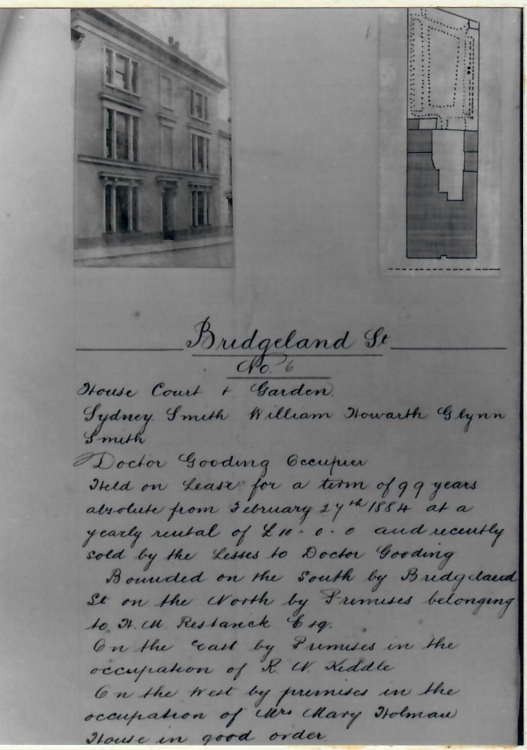 Bridgeland St
No. 6
House Court & Garden.
Sydney Smith William Howarth Glynn
Smith
Doctor Gooding Occupier
Held on Lease for a term of 99 years
absolute from February 27th 1884 at a
yearly rental of £10-0-0 and recently
sold by the Lesses to Doctor Gooding
Bounded on the South by Bridgeland
St on the North by Premises belonging
to H. M Restarick Esq.
On the East by Premises in the
occupation of R. N. Kiddle
On the West by premises in the
occupation of Mrs Mary Holman
House in good order